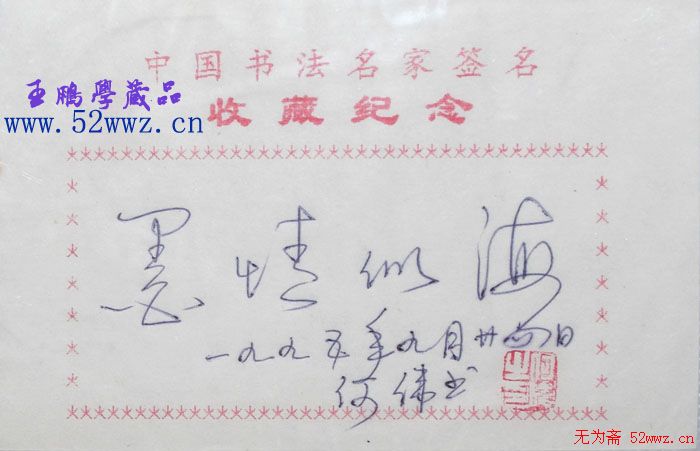 中国书法名家签名
王鹏學蔵品
收藏纪念
www.52wwz.cn
墨情似海
一九九五年九月廿四日
何伟书
无为斋 52wwz.cn